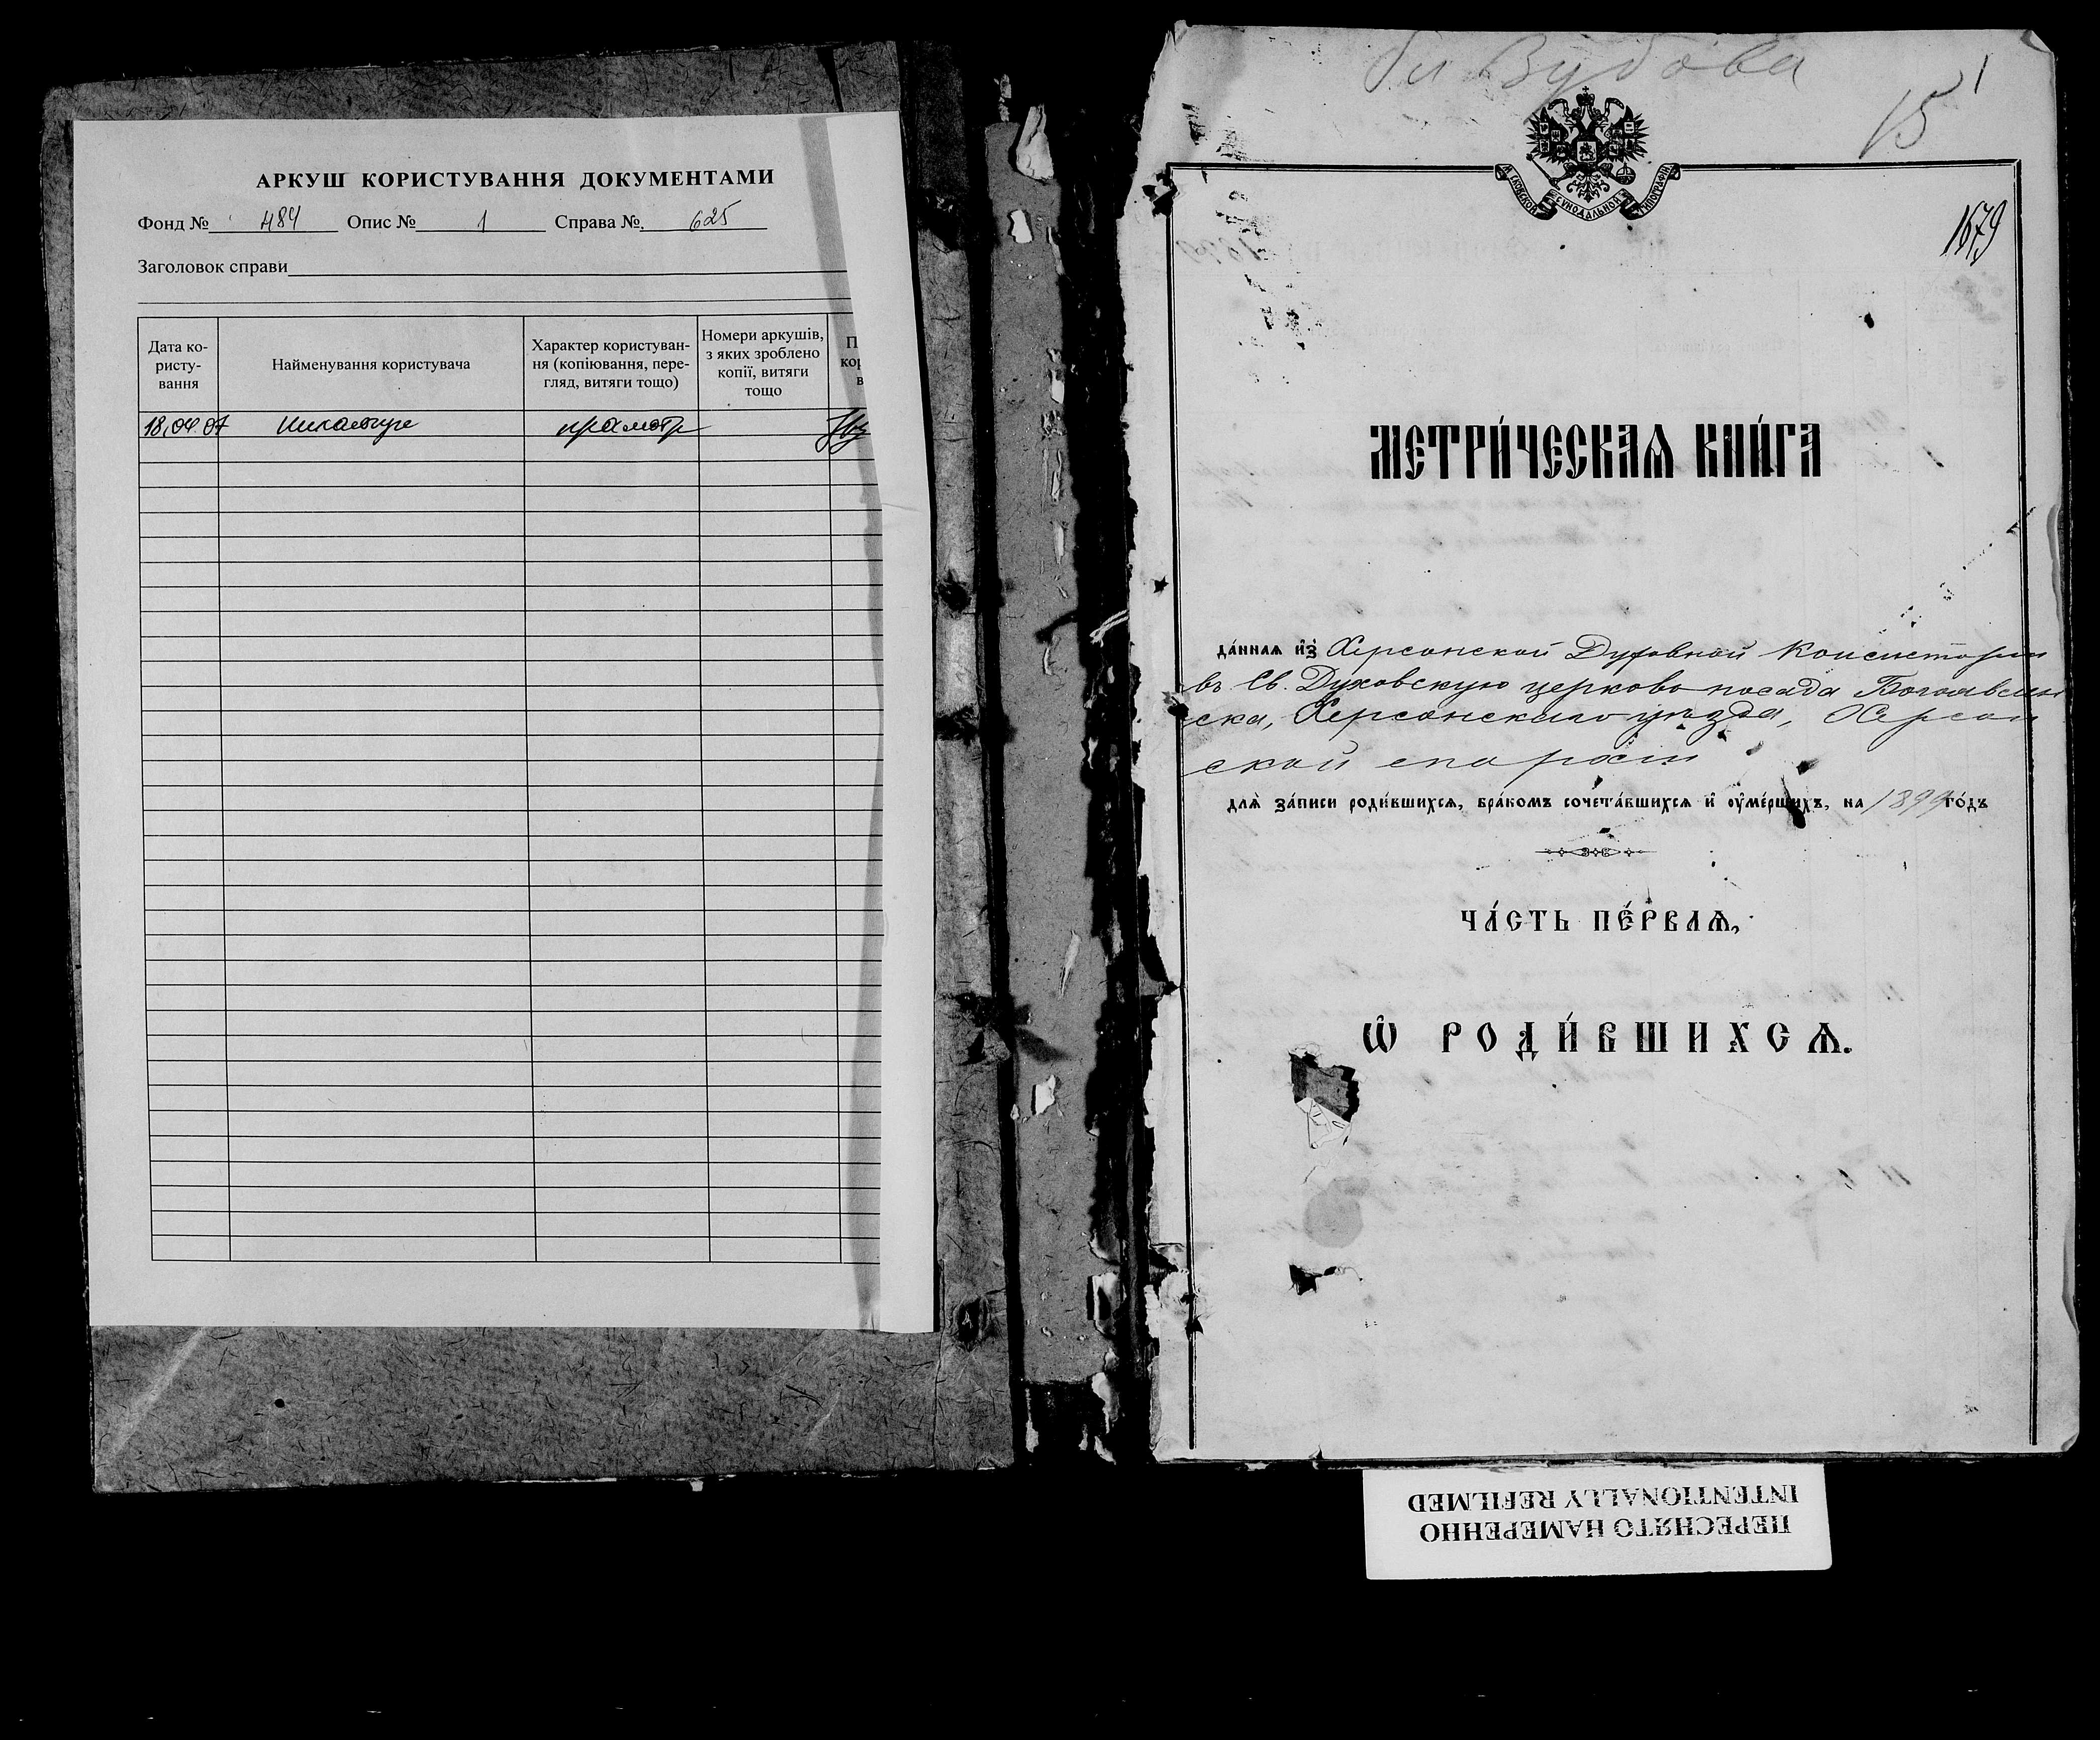 АРКУШ КОРИСТУВАННЯ ДОКУМЕНТАМИ
Фонд № 484 Опис № 1 Справа №. 625
Заголовок справи
Дата ко-
ристу-
вання
Найменування користувача
Характер користуван-
ня (копіювання, пере-
гляд, витяги тощо)
Номери аркушів,
з яких зроблено
копії, витяги
тощо
П
кор
в
18.04.07
15
1
СКОВСКОЙ СѴНОДАЛЬНОЙ ТИПОГРАФІИ
1679
МЕТРИ́ЧЕСКАѦ КНИ́ГА
да́ннаѧ и҆з̾ Херсонской Духовной Консисторіи
въ Св. Духовскую церковь посада Богоявлен
ска, Херсонскаго уѣзда, Херсон
ской епархіи
для̀ за́писи роди́вшихсѧ, бра́комъ сочета́вшихсѧ и҆ ᲂу҆ме́ршихъ, на 1899 го́дъ
ЧА́СТЬ ПЕ́РВАѦ,
Ѽ РОДИ́ВШИХСѦ.
ПЕРЕСНЯТО НАМЕРЕННО
INTENTIONALLY REFILMED